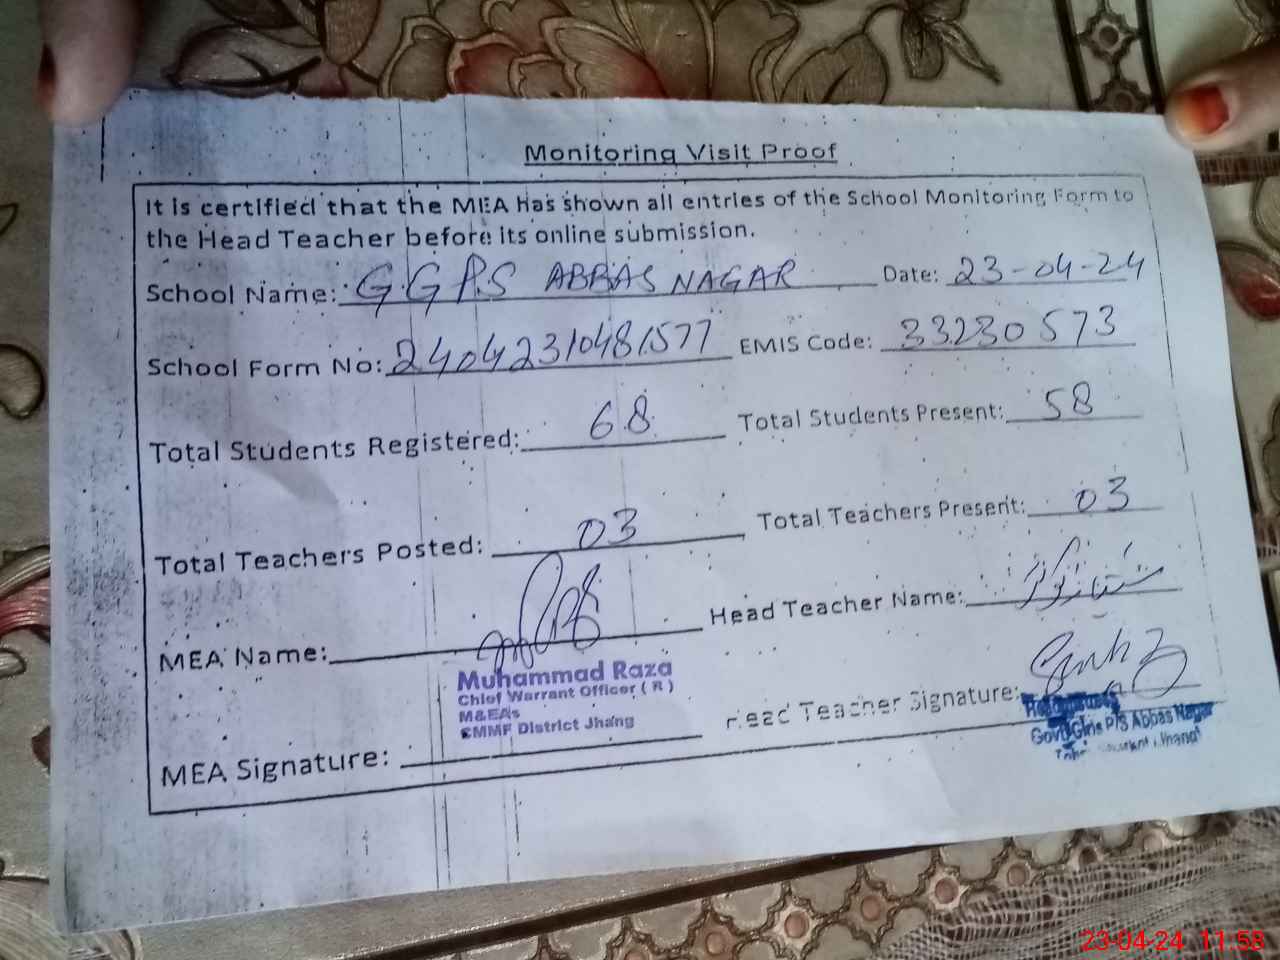 Monitoring Visit Proof
It is certified that the MEA Has shown all entries of the School Monitoring Form to
the Head Teacher before its online submission.
School Name: G.G P.S ABBAS NAGAR Date: 23-04-24
School Form No: 24042310481577 EMIS Code: 33230573
Total Students Registered: 68 Total Students Present: 58
Total Teachers Posted: 03 Total Teachers Present: 03
MEA Name: Head Teacher Name:
Muhammad Raza
Chief Warrant Officer ( R )
M&EAs
CMMF District Jhang
MEA Signature: Head Teacher Signature:
Govt Girls P/S Abbas Nagar
23-04-24 11:58